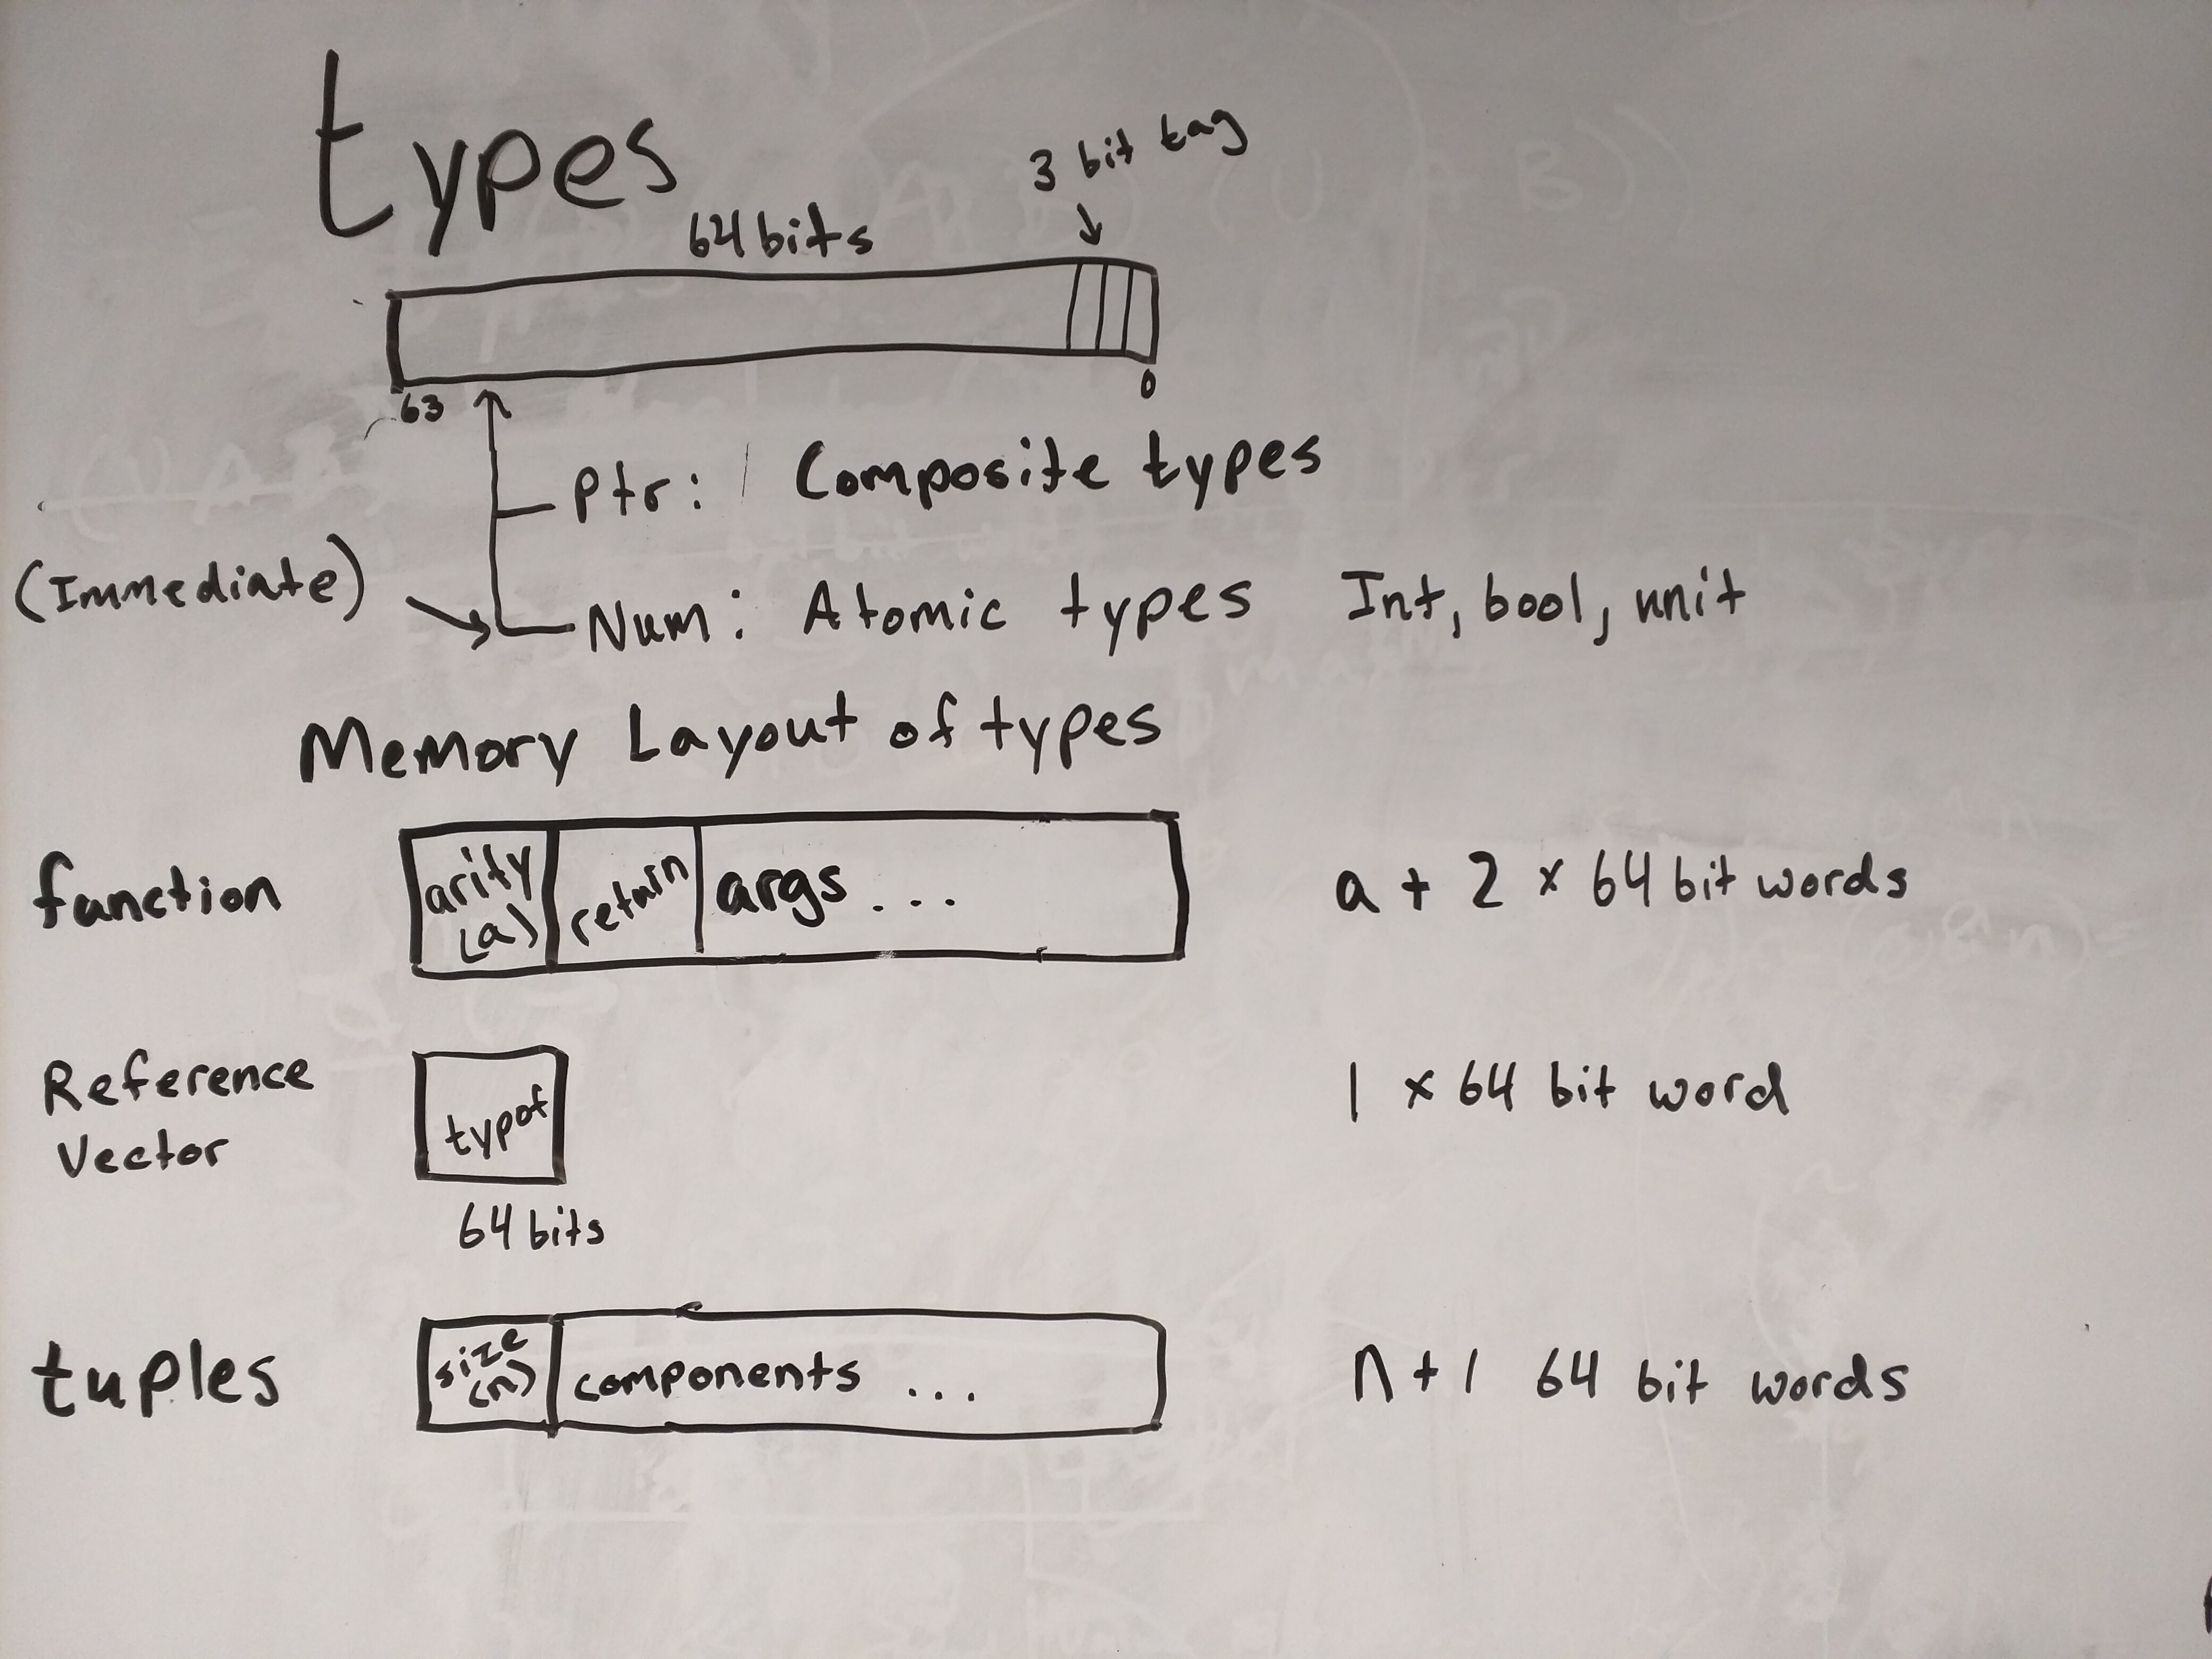 types
3 bit tag
64 bits
63
0
Ptr: Composite types
(Immediate)
Num: Atomic types Int, bool, unit
Memory Layout of types
function
arity
(a)
return
args ...
a + 2 × 64 bit words
Reference
Vector
typof
64 bits
1 × 64 bit word
tuples
size
(n)
components ...
n + 1 64 bit words